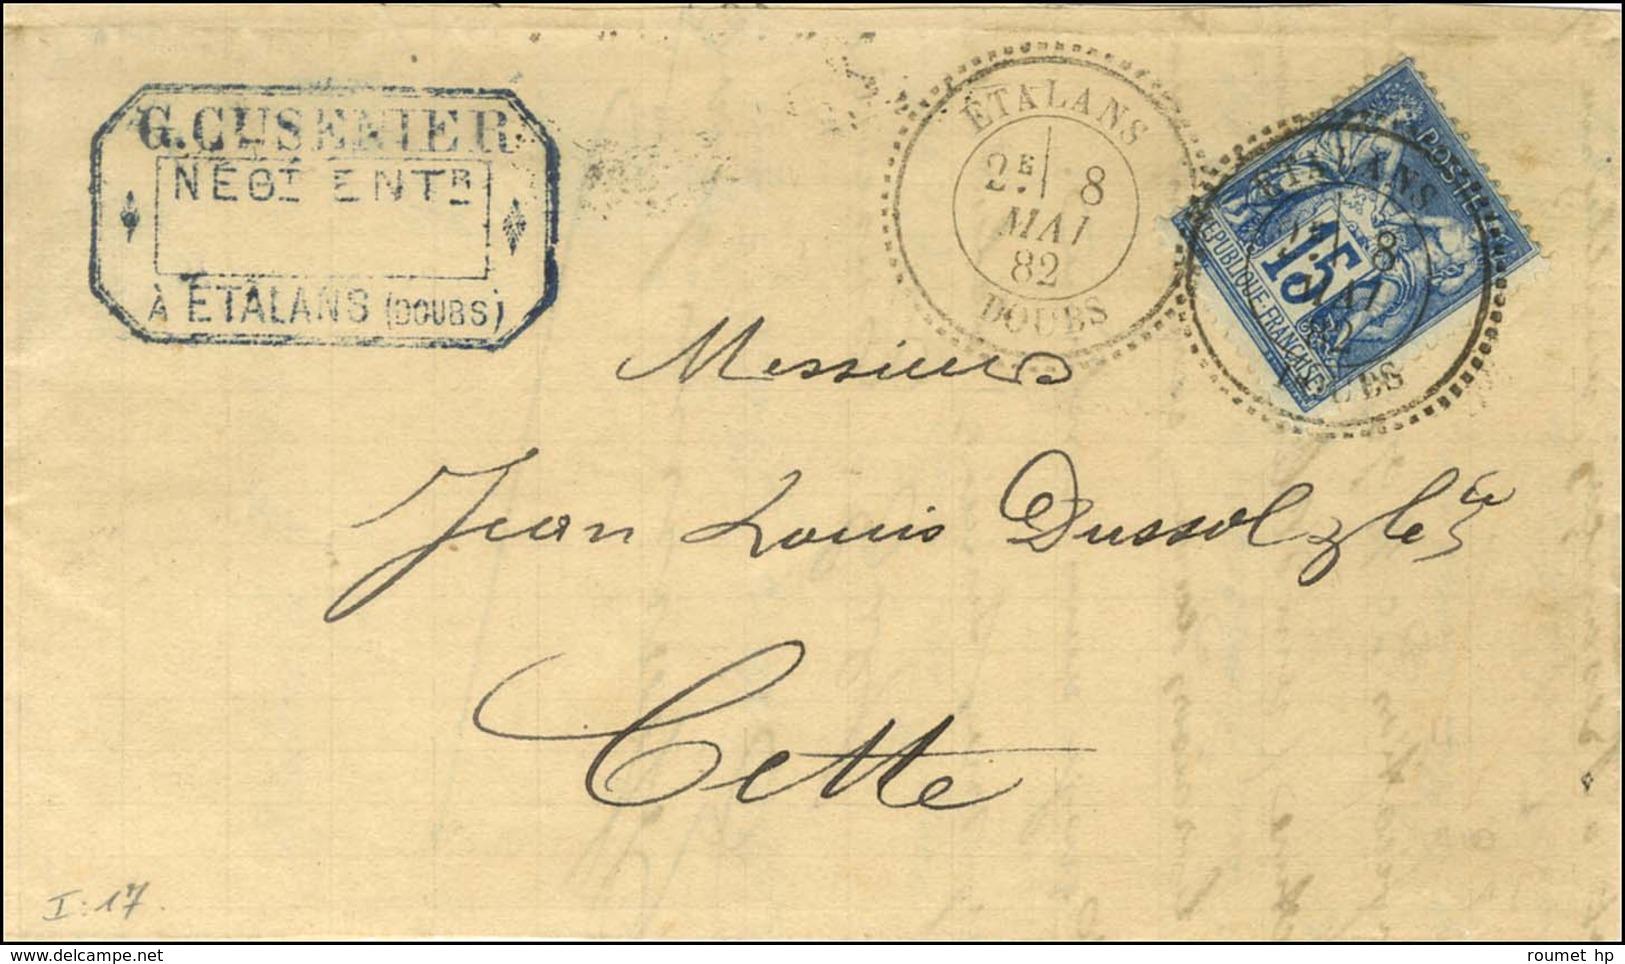 G. CUSENIER
NÉGT ENTR
À ÉTALANS (DOUBS)
ÉTALANS
2E 8
MAI
82
DOUBS
POSTES
15
REPUBLIQUE·FRANÇAISE
ÉTALANS
8
MAI
82
DOUBS
Messieurs
Jean Louis Dussol & Cie
Cette
I:17
roumet hp